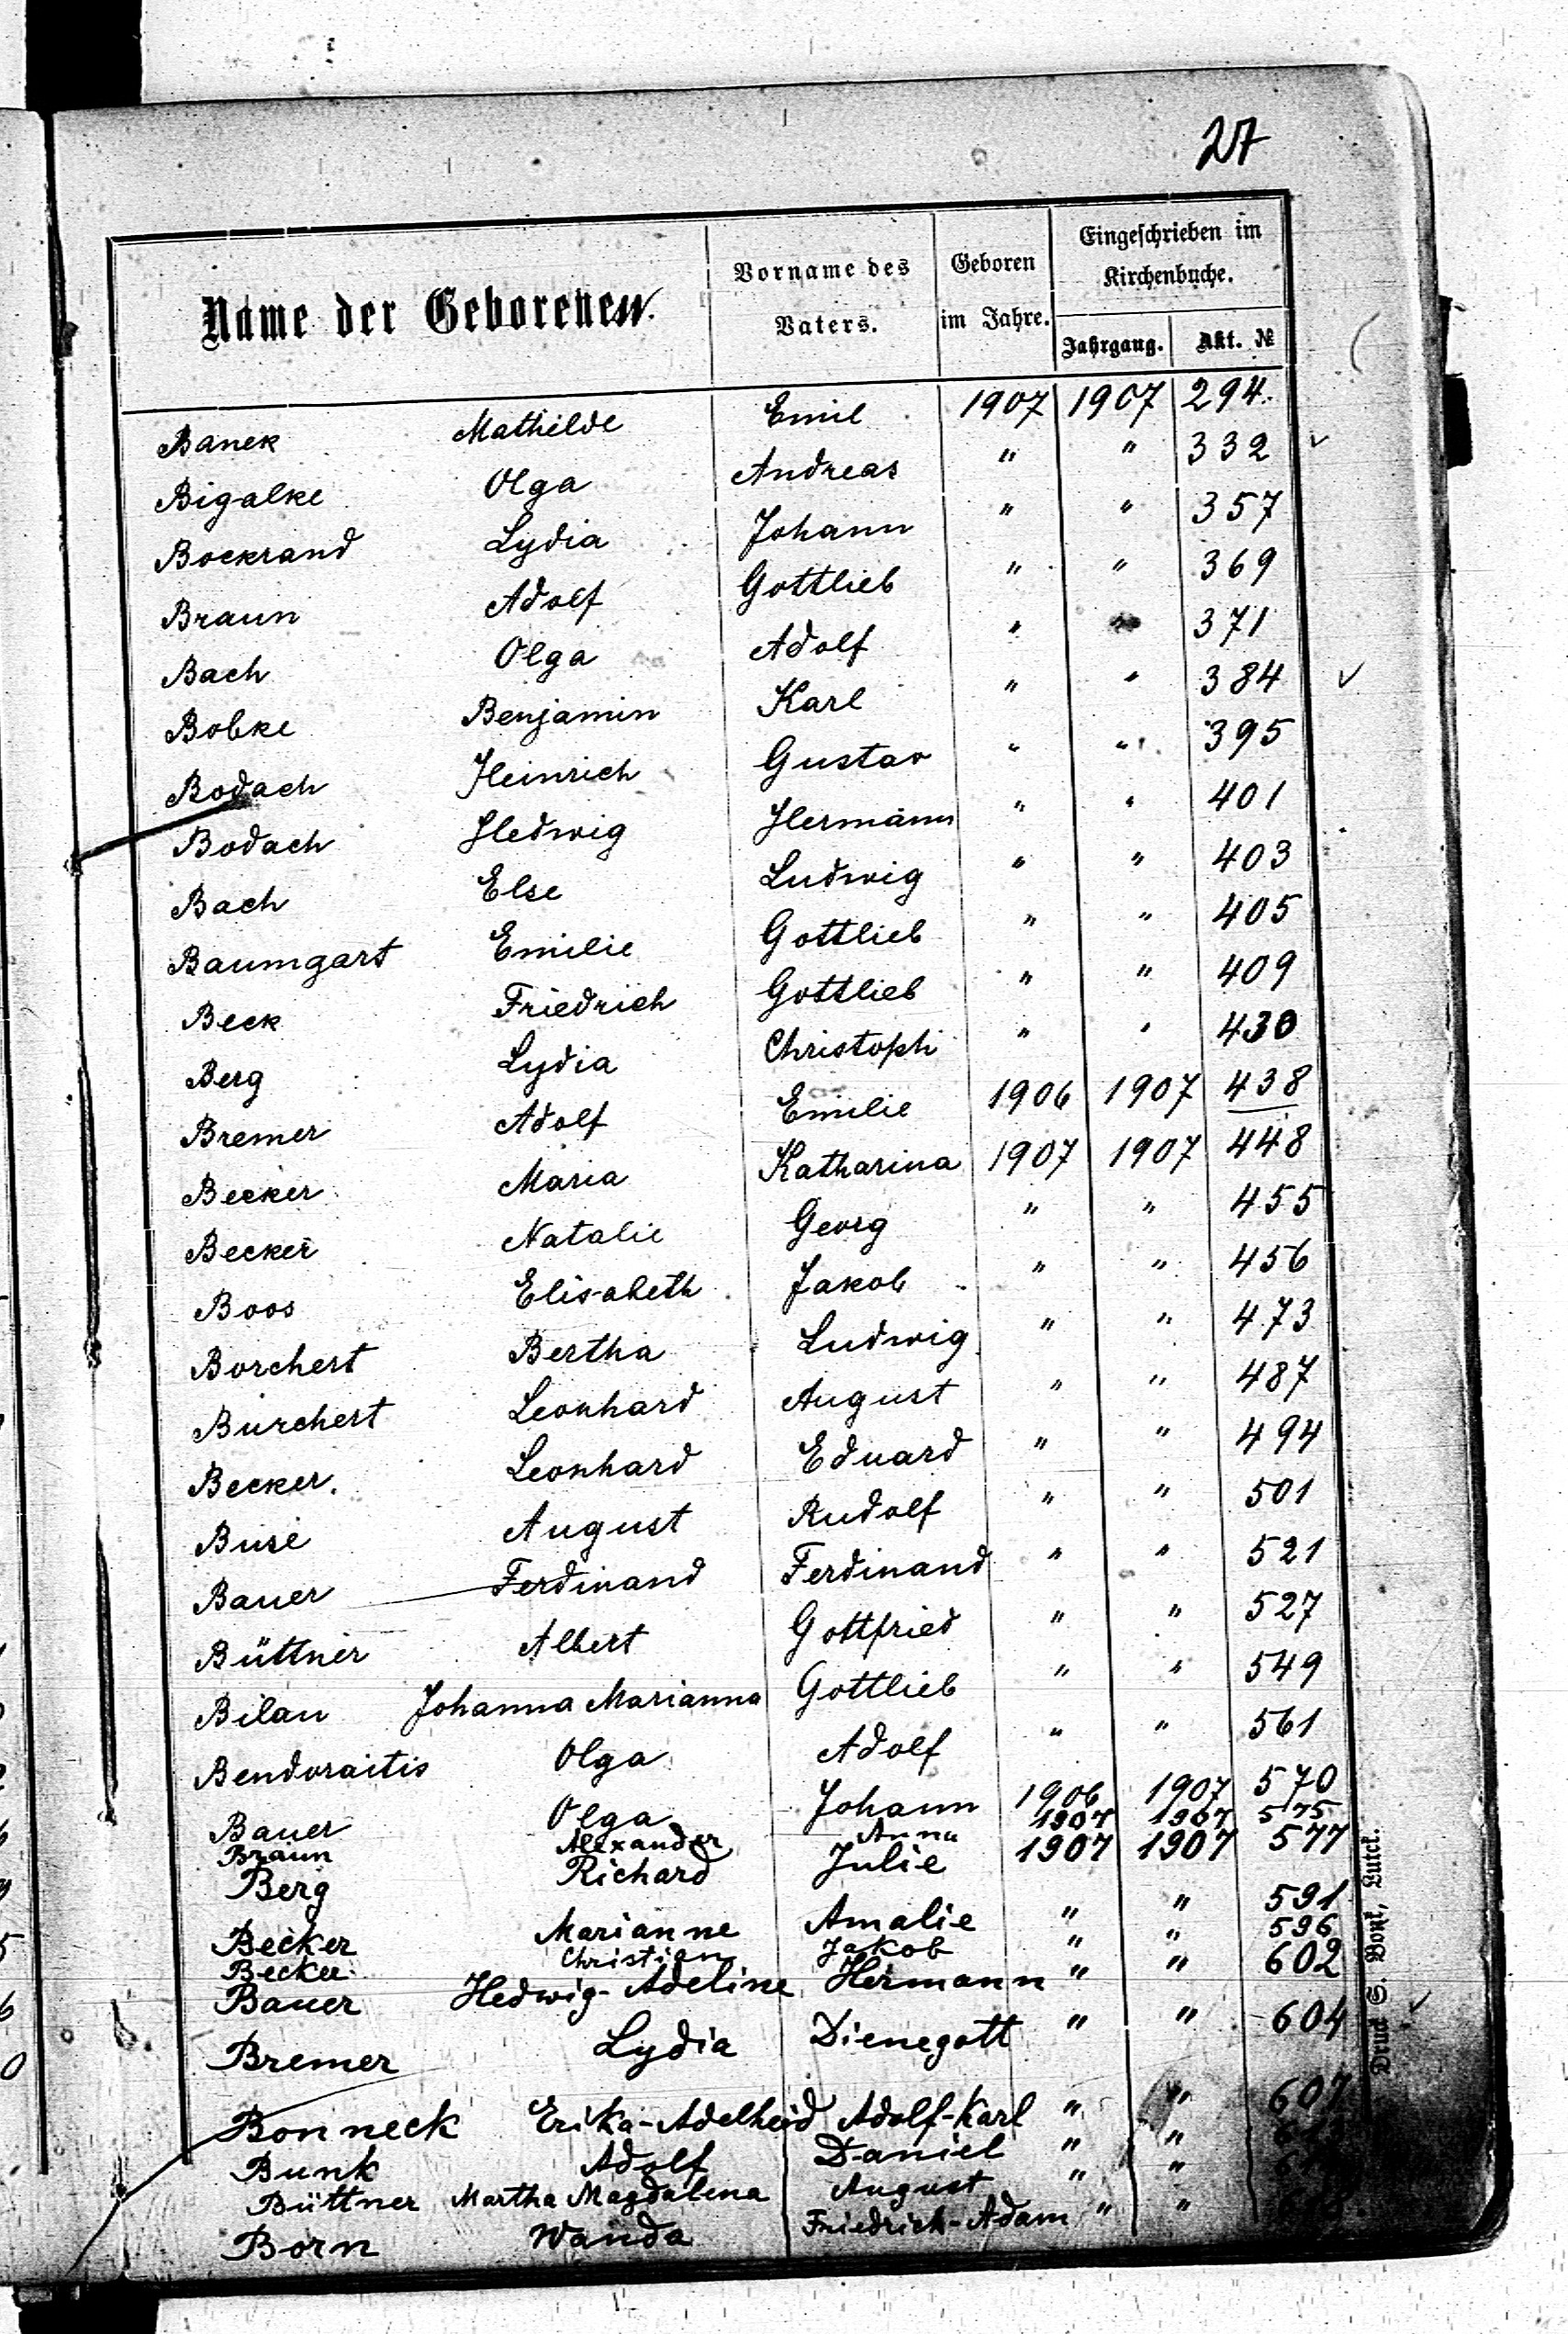 27
Name der Geborenen.
Vorname des Vaters.
Geboren im Jahre.
Eingeschrieben im Kirchenbuche.
Jahrgang. Akt. №
Banek Mathilde Emil 1907 1907 294.
Bigalke Olga Andreas " " 332 ✓
Bockrand Lydia Johann " " 357
Braun Adolf Gottlieb " " 369
Bach Olga Adolf " " 371
Bobke Benjamin Karl " " 384 ✓
Bodach Heinrich Gustav " " 395
Bodach Hedwig Hermann " " 401
Bach Else Ludwig " " 403
Baumgart Emilie Gottlieb " " 405
Beck Friedrich Gottlieb " " 409
Berg Lydia Christoph " " 430
Bremer Adolf Emilie 1906 1907 438
Becker Maria Katharina 1907 1907 448
Becker Natalie Georg " " 455
Boos Elisabeth Jakob " " 456
Borchert Bertha Ludwig " " 473
Burchert Leonhard August " " 487
Becker. Leonhard Eduard " " 494
Buse August Rudolf " " 501
Bauer Ferdinand Ferdinand " " 521
Büttner Albert Gottfried " " 527
Bilan Johanna Marianna Gottlieb " " 549
Bendoraitis Olga Adolf " " 561
Bauer Olga Johann 1906 1907 570
Braun Alexander Anna 1907 1907 575
Berg Richard Julie 1907 1907 577
Becker Marianne Amalie " " 591
Becker Christian Jakob " " 596
Bauer Hedwig-Adeline Hermann " " 602
Bremer Lydia Dienegott " " 604 ✓
Bonneck Erika-Adelheid Adolf-Karl " " 607
Bunk Adolf Daniel " "
Büttner Martha Magdalena August " "
Born Wanda Friedrich-Adam " "
Druck S. Bonk, Lutzk.